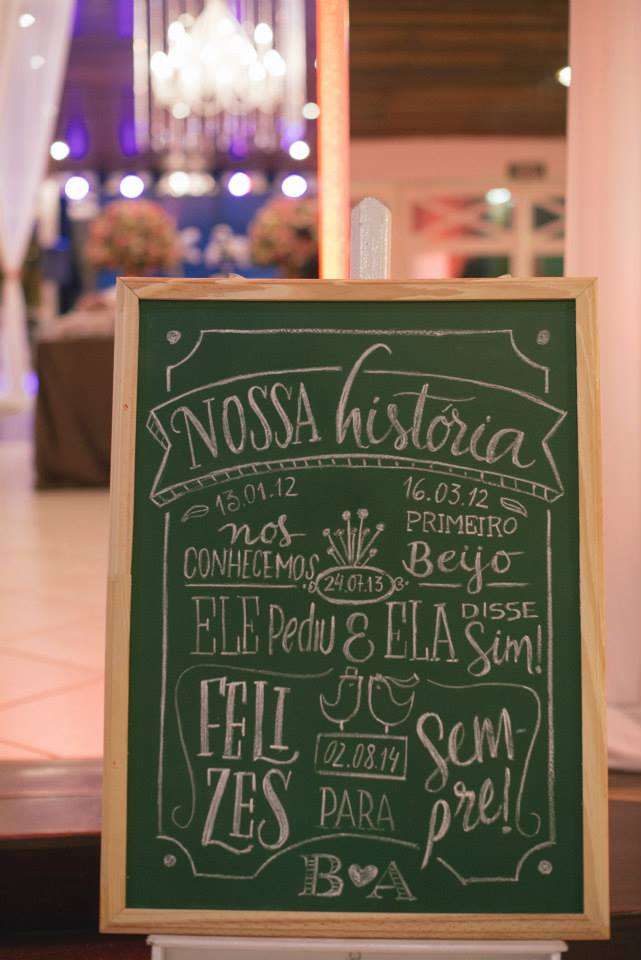 NOSSA história
13.01.12
nos
CONHECEMOS
16.03.12
PRIMEIRO
Beijo
24.07.13
ELE Pediu & ELA DISSE Sim!
FELIZES
02.08.14
PARA
Sem-
pre!
B A